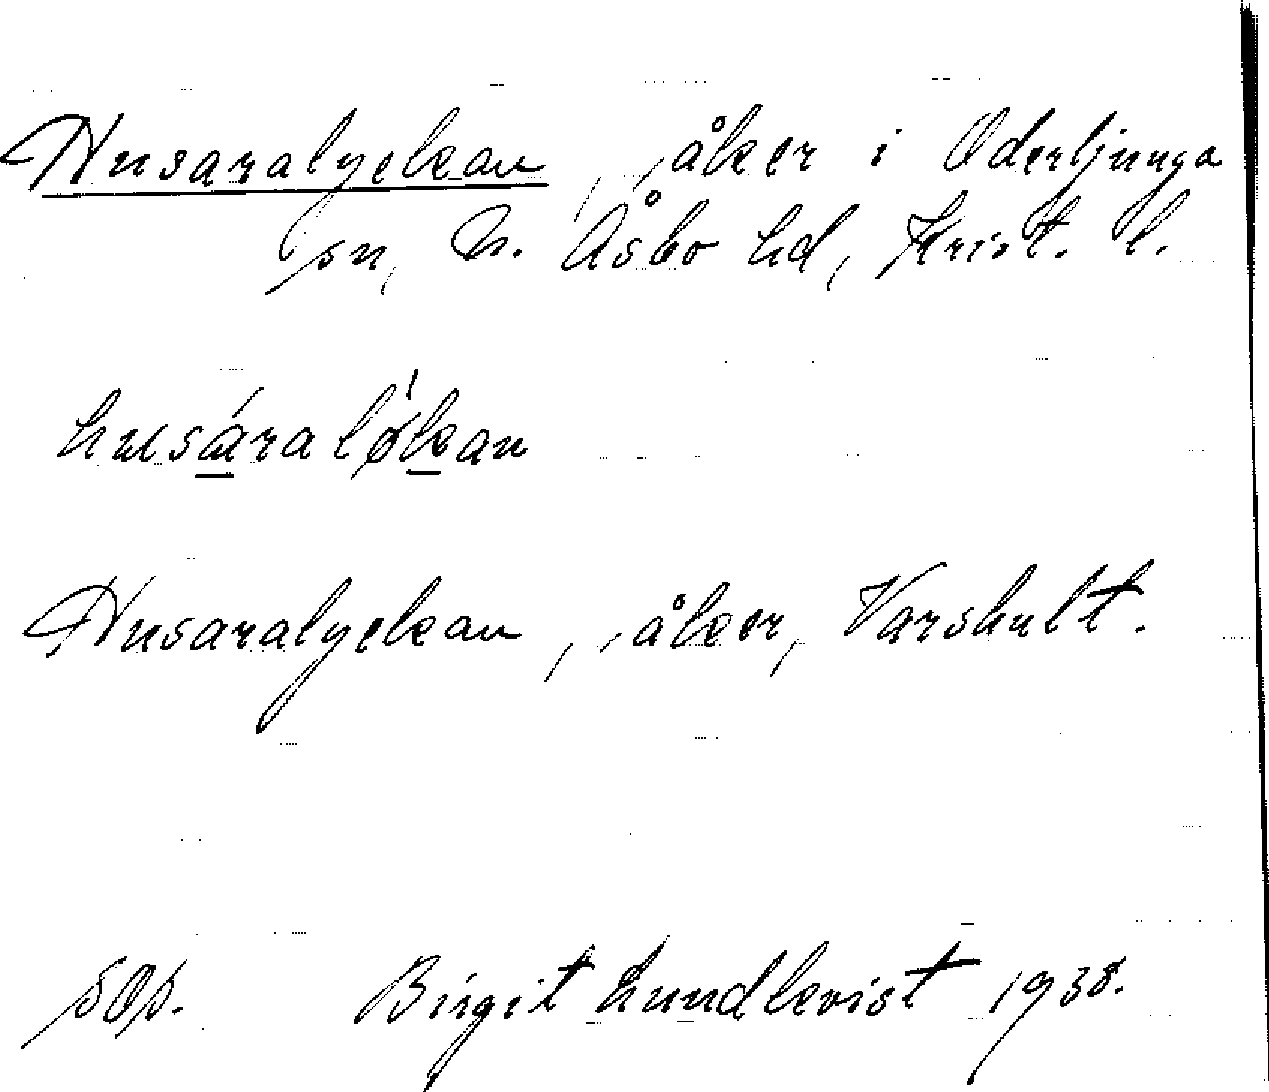 Husaralyckan, åker i Oderljunga
sn, N. Åsbo hd, Krist. l.
husáraløkan
Husaralyckan, åker, Varshult.
Birgit Lundkvist 1938.